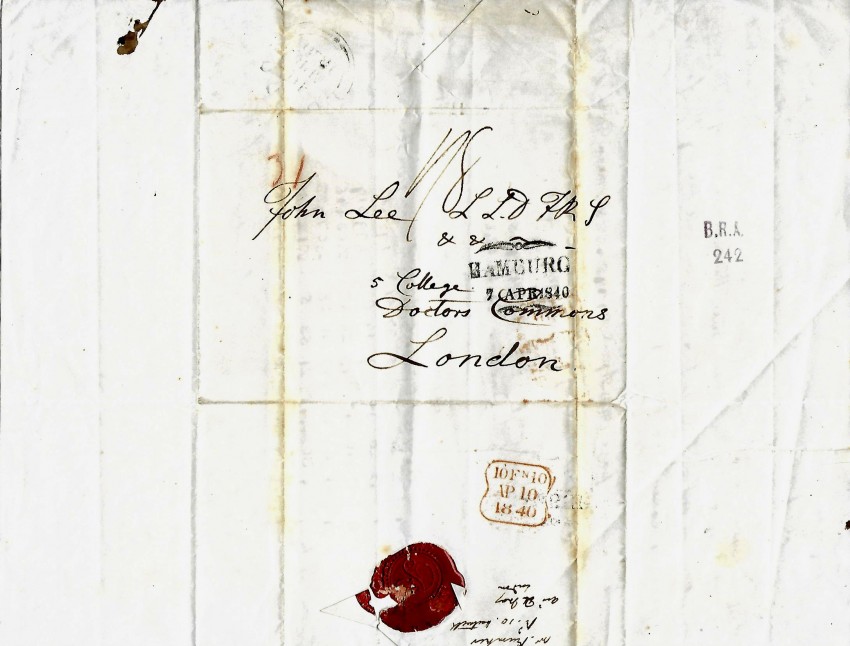 31
John Lee L L.D F.R S
& &
HAMBURG
7 APR 1840
5 College
Doctors Commons
London
B.R.A.
242
10 FN 10
AP 10
1840